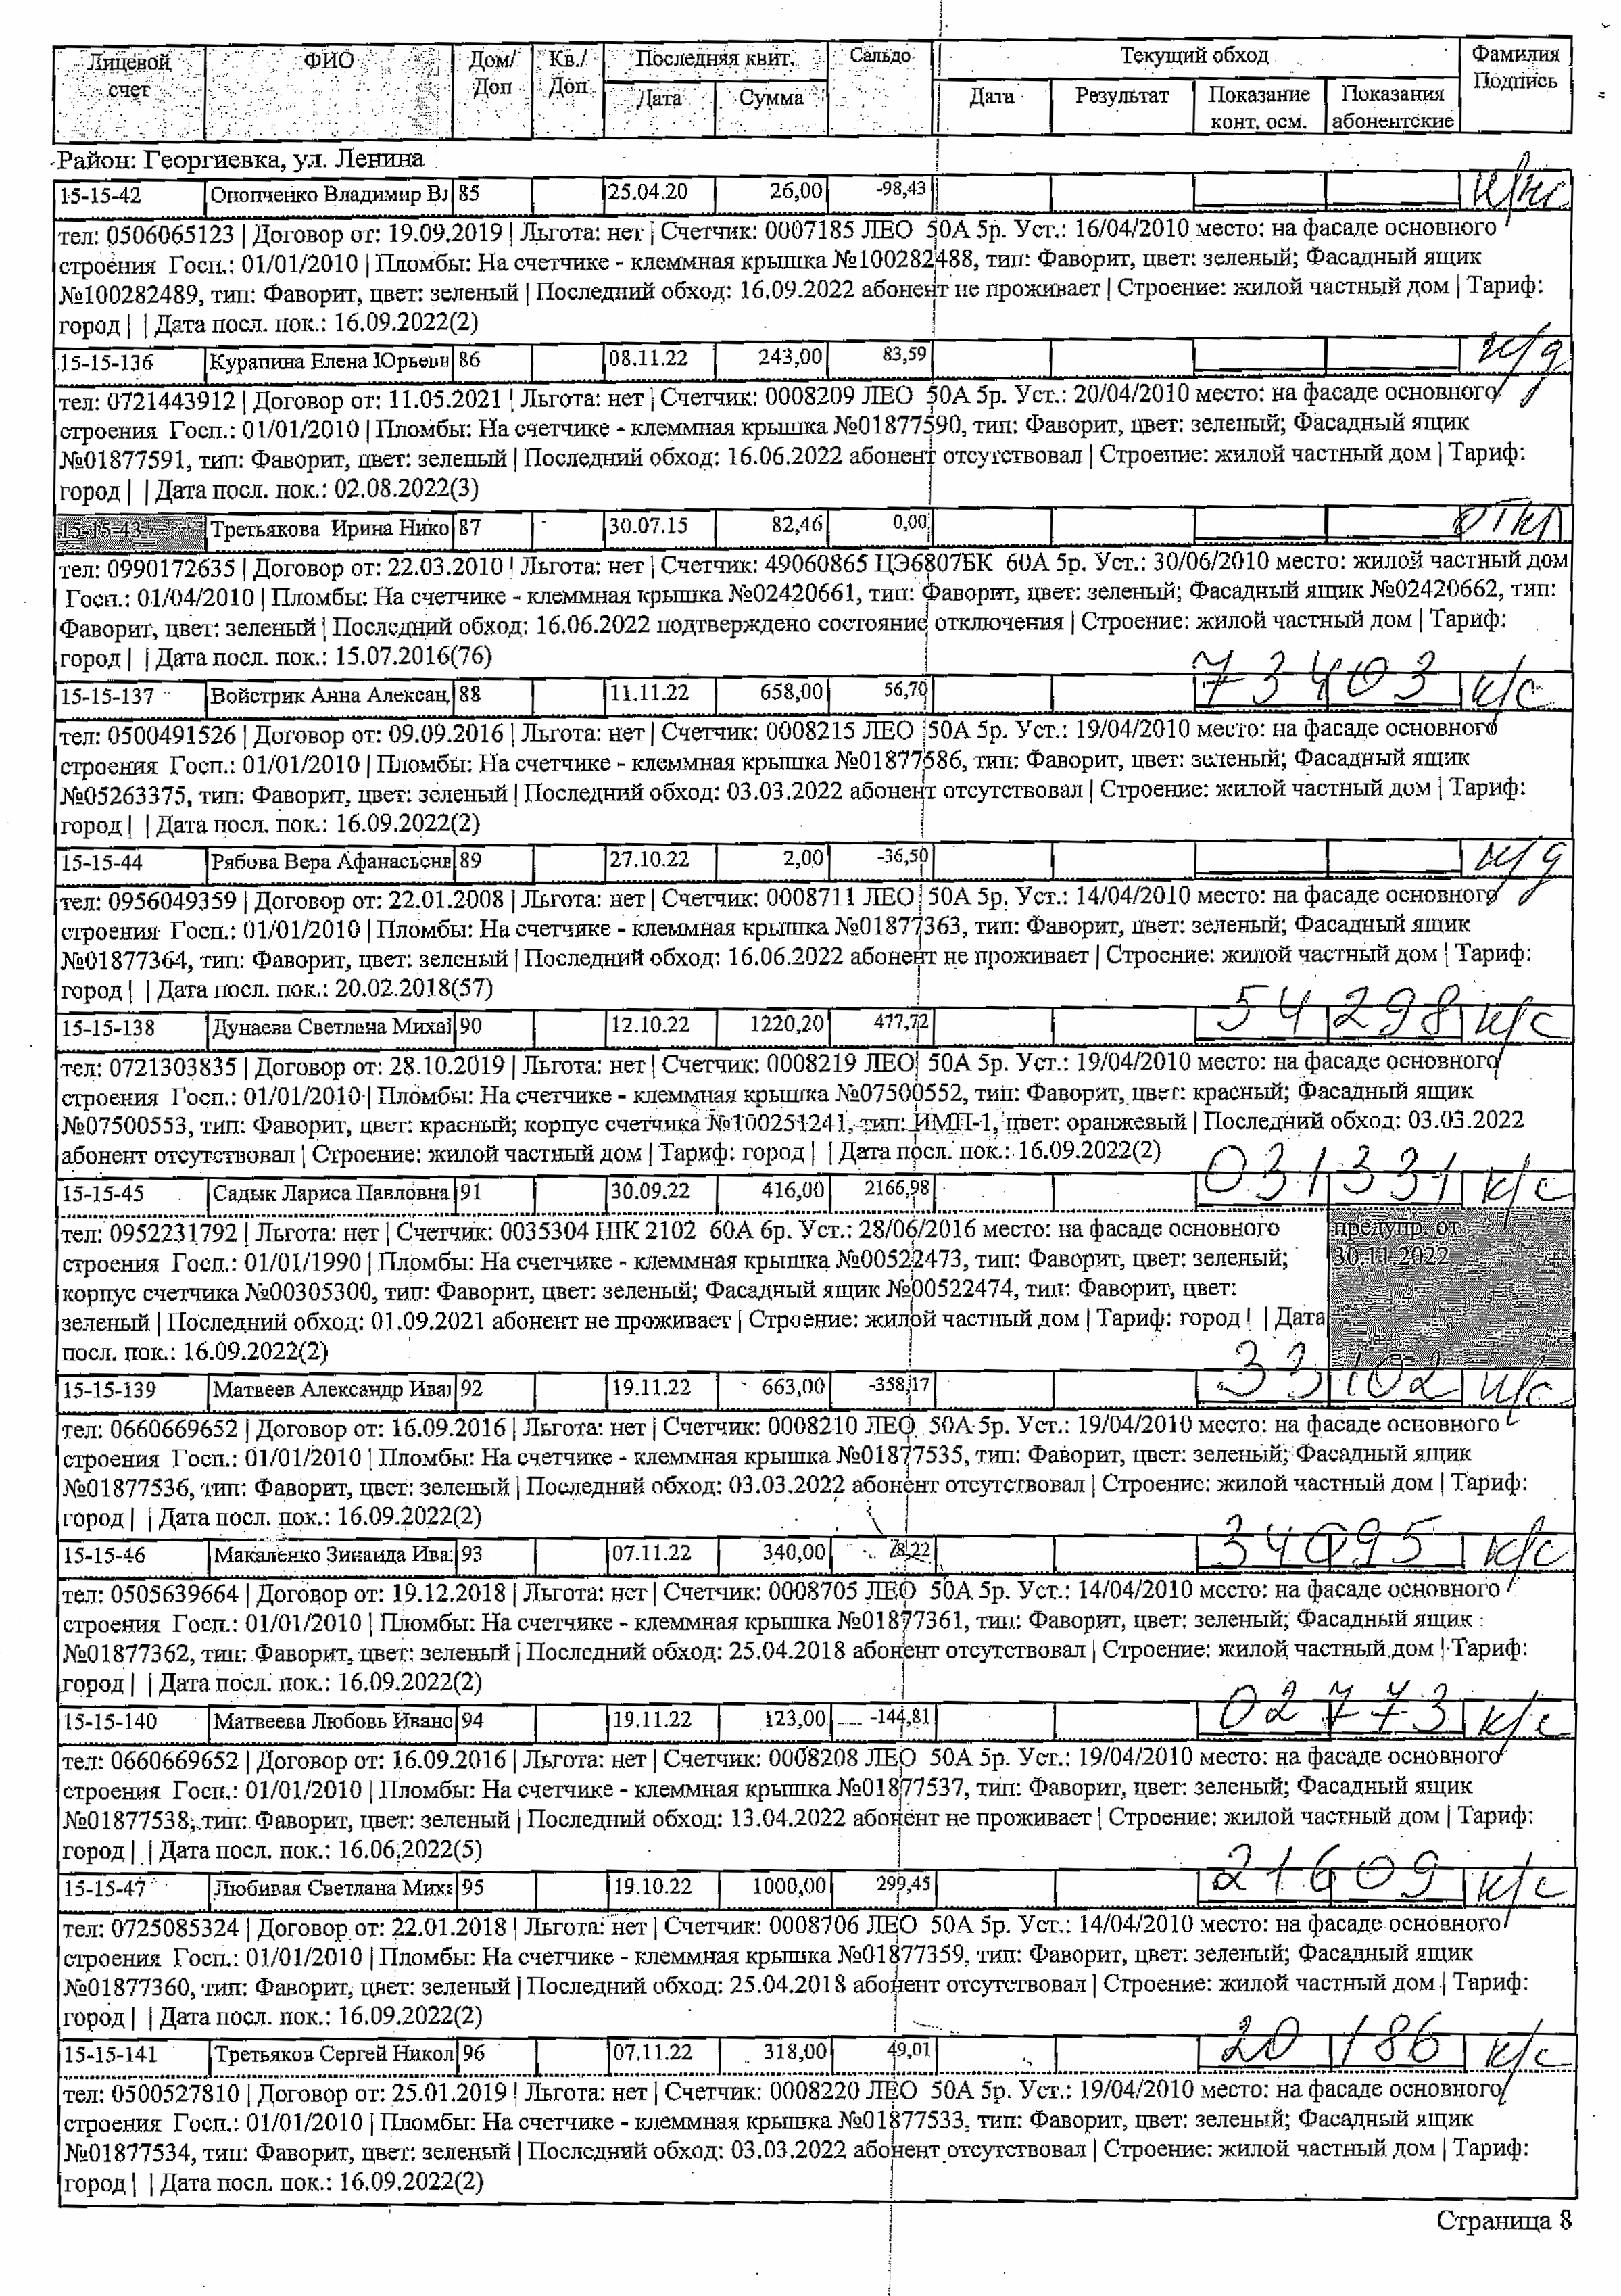 Лицевой счет | ФИО | Дом/ Доп | Кв./ Доп | Последняя квит. Дата Сумма | Сальдо | Текущий обход Дата Результат Показание конт. осм. Показания абонентские | Фамилия Подпись
Район: Георгиевка, ул. Ленина
15-15-42 Онопченко Владимир Вл 85 25.04.20 26,00 -98,43 н/нс
тел: 0506065123 | Договор от: 19.09.2019 | Льгота: нет | Счетчик: 0007185 ЛЕО 50А 5р. Уст.: 16/04/2010 место: на фасаде основного
строения Госп.: 01/01/2010 | Пломбы: На счетчике - клеммная крышка №100282488, тип: Фаворит, цвет: зеленый; Фасадный ящик
№100282489, тип: Фаворит, цвет: зеленый | Последний обход: 16.09.2022 абонент не проживает | Строение: жилой частный дом | Тариф:
город | | Дата посл. пок.: 16.09.2022(2)
15-15-136 Курапина Елена Юрьевн 86 08.11.22 243,00 83,59 н/д
тел: 0721443912 | Договор от: 11.05.2021 | Льгота: нет | Счетчик: 0008209 ЛЕО 50А 5р. Уст.: 20/04/2010 место: на фасаде основного
строения Госп.: 01/01/2010 | Пломбы: На счетчике - клеммная крышка №01877590, тип: Фаворит, цвет: зеленый; Фасадный ящик
№01877591, тип: Фаворит, цвет: зеленый | Последний обход: 16.06.2022 абонент отсутствовал | Строение: жилой частный дом | Тариф:
город | | Дата посл. пок.: 02.08.2022(3)
15-15-43 Третьякова Ирина Нико 87 30.07.15 82,46 0,00 откл
тел: 0990172635 | Договор от: 22.03.2010 | Льгота: нет | Счетчик: 49060865 ЦЭ6807БК 60А 5р. Уст.: 30/06/2010 место: жилой частный дом
Госп.: 01/04/2010 | Пломбы: На счетчике - клеммная крышка №02420661, тип: Фаворит, цвет: зеленый; Фасадный ящик №02420662, тип:
Фаворит, цвет: зеленый | Последний обход: 16.06.2022 подтверждено состояние отключения | Строение: жилой частный дом | Тариф:
город | | Дата посл. пок.: 15.07.2016(76)
15-15-137 Войстрик Анна Алексан, 88 11.11.22 658,00 56,70 73403 к/с
тел: 0500491526 | Договор от: 09.09.2016 | Льгота: нет | Счетчик: 0008215 ЛЕО 50А 5р. Уст.: 19/04/2010 место: на фасаде основного
строения Госп.: 01/01/2010 | Пломбы: На счетчике - клеммная крышка №01877586, тип: Фаворит, цвет: зеленый; Фасадный ящик
№05263375, тип: Фаворит, цвет: зеленый | Последний обход: 03.03.2022 абонент отсутствовал | Строение: жилой частный дом | Тариф:
город | | Дата посл. пок.: 16.09.2022(2)
15-15-44 Рябова Вера Афанасьевн 89 27.10.22 2,00 -36,50 н/д
тел: 0956049359 | Договор от: 22.01.2008 | Льгота: нет | Счетчик: 0008711 ЛЕО 50А 5р. Уст.: 14/04/2010 место: на фасаде основного
строения Госп.: 01/01/2010 | Пломбы: На счетчике - клеммная крышка №01877363, тип: Фаворит, цвет: зеленый; Фасадный ящик
№01877364, тип: Фаворит, цвет: зеленый | Последний обход: 16.06.2022 абонент не проживает | Строение: жилой частный дом | Тариф:
город | | Дата посл. пок.: 20.02.2018(57)
15-15-138 Дунаева Светлана Михаі 90 12.10.22 1220,20 477,72 54298 к/с
тел: 0721303835 | Договор от: 28.10.2019 | Льгота: нет | Счетчик: 0008219 ЛЕО 50А 5р. Уст.: 19/04/2010 место: на фасаде основного
строения Госп.: 01/01/2010 | Пломбы: На счетчике - клеммная крышка №07500552, тип: Фаворит, цвет: красный; Фасадный ящик
№07500553, тип: Фаворит, цвет: красный; корпус счетчика №100251241, тип: ИМП-1, цвет: оранжевый | Последний обход: 03.03.2022
абонент отсутствовал | Строение: жилой частный дом | Тариф: город | | Дата посл. пок.: 16.09.2022(2)
15-15-45 Садык Лариса Павловна 91 30.09.22 416,00 2166,98 031331 к/с
тел: 0952231792 | Льгота: нет | Счетчик: 0035304 НІК 2102 60А 6р. Уст.: 28/06/2016 место: на фасаде основного
строения Госп.: 01/01/1990 | Пломбы: На счетчике - клеммная крышка №00522473, тип: Фаворит, цвет: зеленый;
корпус счетчика №00305300, тип: Фаворит, цвет: зеленый; Фасадный ящик №00522474, тип: Фаворит, цвет:
зеленый | Последний обход: 01.09.2021 абонент не проживает | Строение: жилой частный дом | Тариф: город | | Дата
посл. пок.: 16.09.2022(2)
предупр. от
30.11.2022
15-15-139 Матвеев Александр Иваı 92 19.11.22 663,00 -358,17 33102 к/с
тел: 0660669652 | Договор от: 16.09.2016 | Льгота: нет | Счетчик: 0008210 ЛЕО 50А 5р. Уст.: 19/04/2010 место: на фасаде основного
строения Госп.: 01/01/2010 | Пломбы: На счетчике - клеммная крышка №01877535, тип: Фаворит, цвет: зеленый; Фасадный ящик
№01877536, тип: Фаворит, цвет: зеленый | Последний обход: 03.03.2022 абонент отсутствовал | Строение: жилой частный дом | Тариф:
город | | Дата посл. пок.: 16.09.2022(2)
15-15-46 Макаленко Зинаида Ива 93 07.11.22 340,00 34095 к/с
тел: 0505639664 | Договор от: 19.12.2018 | Льгота: нет | Счетчик: 0008705 ЛЕО 50А 5р. Уст.: 14/04/2010 место: на фасаде основного
строения Госп.: 01/01/2010 | Пломбы: На счетчике - клеммная крышка №01877361, тип: Фаворит, цвет: зеленый; Фасадный ящик
№01877362, тип: Фаворит, цвет: зеленый | Последний обход: 25.04.2018 абонент отсутствовал | Строение: жилой частный дом | Тариф:
город | | Дата посл. пок.: 16.09.2022(2)
15-15-140 Матвеева Любовь Ивано 94 19.11.22 123,00 -144,81 02773 к/с
тел: 0660669652 | Договор от: 16.09.2016 | Льгота: нет | Счетчик: 0008208 ЛЕО 50А 5р. Уст.: 19/04/2010 место: на фасаде основного
строения Госп.: 01/01/2010 | Пломбы: На счетчике - клеммная крышка №01877537, тип: Фаворит, цвет: зеленый; Фасадный ящик
№01877538, тип: Фаворит, цвет: зеленый | Последний обход: 13.04.2022 абонент не проживает | Строение: жилой частный дом | Тариф:
город | | Дата посл. пок.: 16.06.2022(5)
15-15-47 Любивая Светлана Миха 95 19.10.22 1000,00 299,45 21609 к/с
тел: 0725085324 | Договор от: 22.01.2018 | Льгота: нет | Счетчик: 0008706 ЛЕО 50А 5р. Уст.: 14/04/2010 место: на фасаде основного
строения Госп.: 01/01/2010 | Пломбы: На счетчике - клеммная крышка №01877359, тип: Фаворит, цвет: зеленый; Фасадный ящик
№01877360, тип: Фаворит, цвет: зеленый | Последний обход: 25.04.2018 абонент отсутствовал | Строение: жилой частный дом | Тариф:
город | | Дата посл. пок.: 16.09.2022(2)
15-15-141 Третьяков Сергей Никол 96 07.11.22 318,00 49,01 20186 к/с
тел: 0500527810 | Договор от: 25.01.2019 | Льгота: нет | Счетчик: 0008220 ЛЕО 50А 5р. Уст.: 19/04/2010 место: на фасаде основного
строения Госп.: 01/01/2010 | Пломбы: На счетчике - клеммная крышка №01877533, тип: Фаворит, цвет: зеленый; Фасадный ящик
№01877534, тип: Фаворит, цвет: зеленый | Последний обход: 03.03.2022 абонент отсутствовал | Строение: жилой частный дом | Тариф:
город | | Дата посл. пок.: 16.09.2022(2)
Страница 8